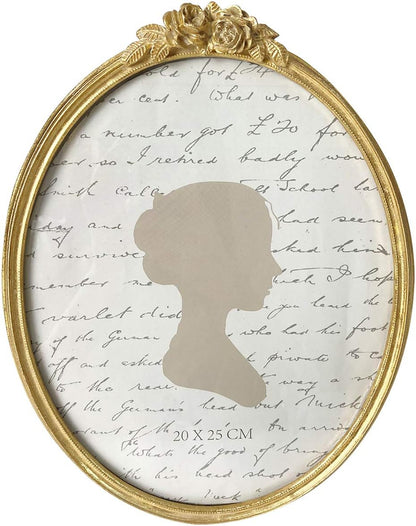 old for £14
per cent. What was
a number got £70 for
so I retired badly wou
Smith called School la
day and had seen
d survive asked him
members which I hope
varlet did you lend the
y of the German who had his foot
off and asked private to ca
to the rear. way a sh
off the German's head out Mick
20 X 25 CM
whats the good of bring
with his head shot